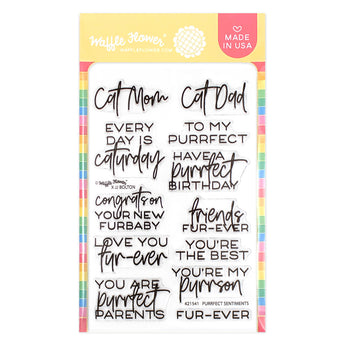 Waffle Flower
WAFFLEFLOWER.COM
MADE IN USA
Cat Mom
Cat Dad
EVERY
DAY IS
caturday
TO MY
PURRFECT
HAVE A
purrfect
BIRTHDAY
© Waffle Flower
X JJ BOLTON
congrats on
YOUR NEW
FURBABY
friends
FUR-EVER
LOVE YOU
fur-ever
YOU'RE
THE BEST
YOU ARE
purrfect
PARENTS
YOU'RE MY
purrson
#21541 PURRFECT SENTIMENTS
FUR-EVER